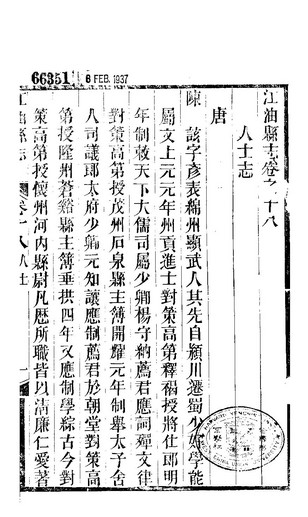 66351
8 FEB. 1937
江油縣志卷之十八
人士志
唐
陳 該字彥表綿州顯武人其先自潁川遷蜀少好學能
屬文上元元年州貢進士對策高第釋褐授將仕郎明
年制敕天下大儒司屬少卿楊守納薦君應詞殫文律
對策高第授茂州石泉主簿開耀元年制舉太子舍
人司議郎太府少卿元知讓應制薦君於朝堂對策高
第授隆州蒼谿縣主簿垂拱四年又應制學綜古今對
策高第授懷州河內縣尉凡歷所職皆以清廉仁愛著
江油縣志
卷十八 人士
一